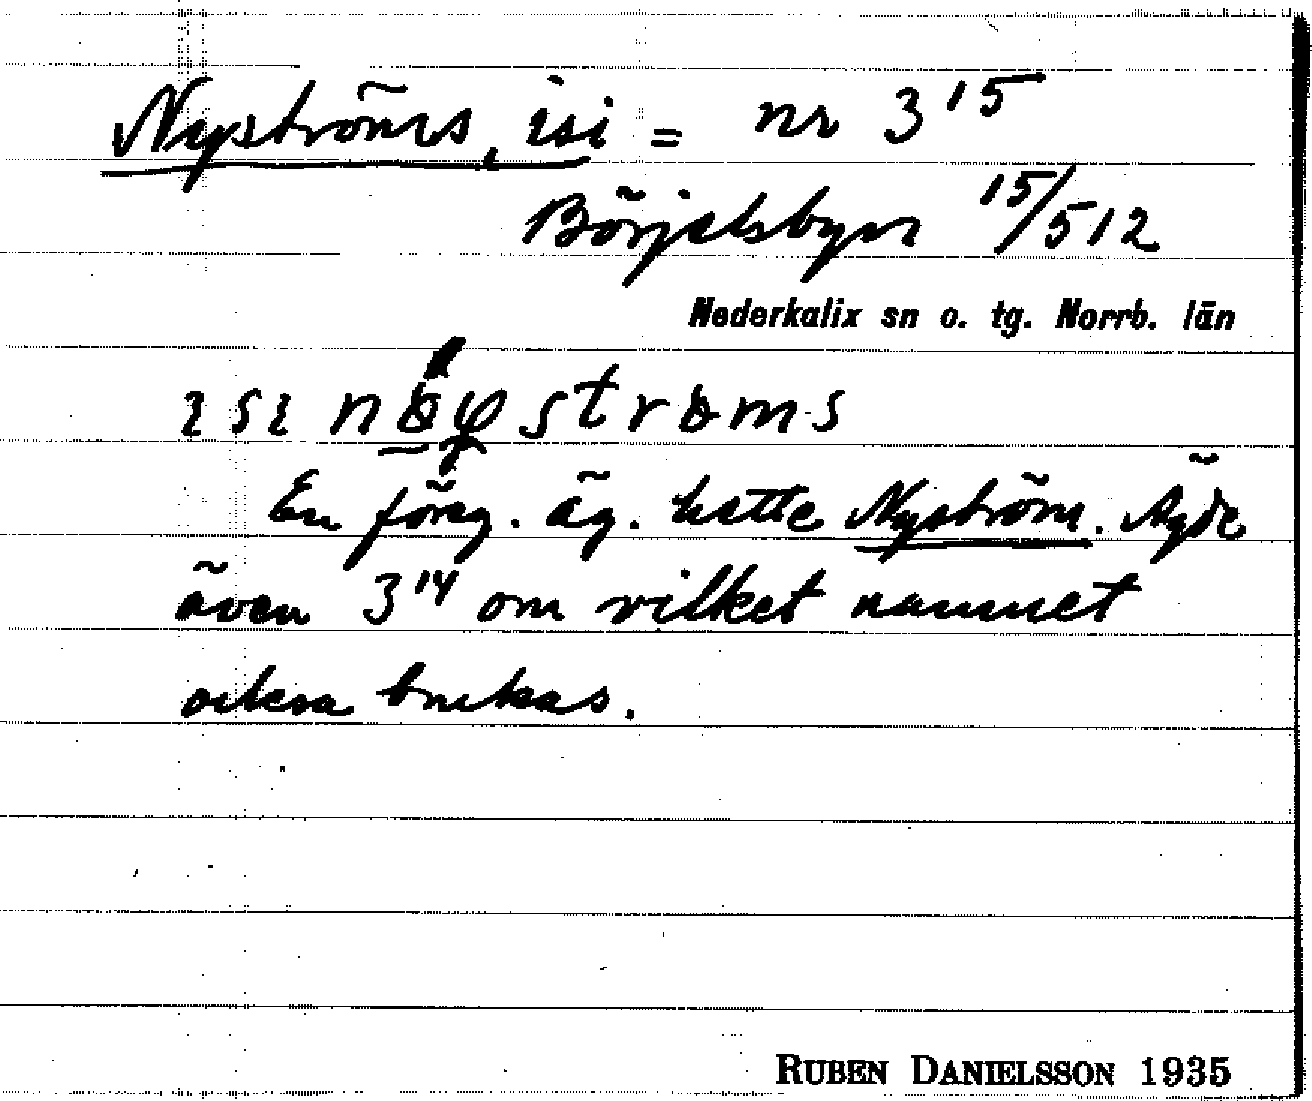 Nyströms, isi = nr 3¹⁵
Börjelsbyn ¹⁵/512
Nederkalix sn o. tg. Norrb. län
ɪsɪ
En föreg. äg. hette Nyström. Ägde
även 3¹⁴ om vilket namnet
också brukas.
RUBEN DANIELSSON 1935